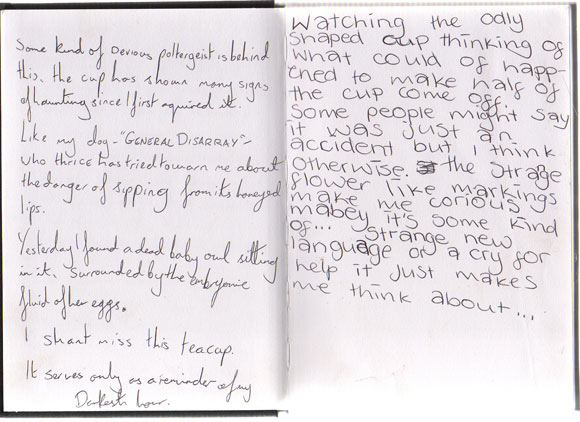 Some kind of Devious poltergeist is behind
this. the cup has shown many signs
of haunting since I first aquired it.
Like my dog - "GENERAL DISARRAY" -
who thrice has tried to warn me about
the danger of sipping from its honeyed
lips.
Yesterday I found a dead baby owl sitting
in it. Surrounded by the embryonic
fluid of her eggs.
I shant miss this teacap.
It serves only as a reminder of my
Darkest hour.
Watching the odly
shaped cup thinking of
what could of happ-
ened to make half of
the cup come off.
Some people might say
it was just an
accident but I think
otherwise. the strage
flower like markings
make me corious
mabey it's some kind
of... strange new
language or a cry for
help it just makes
me think about...